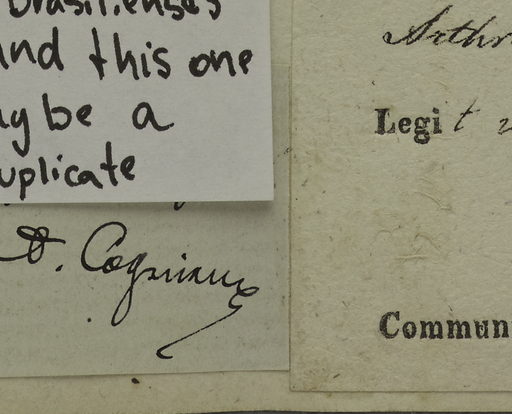 brasilienses
and this one
may be a
duplicate
A. Cogniaux
Arthr
Legit
Commun